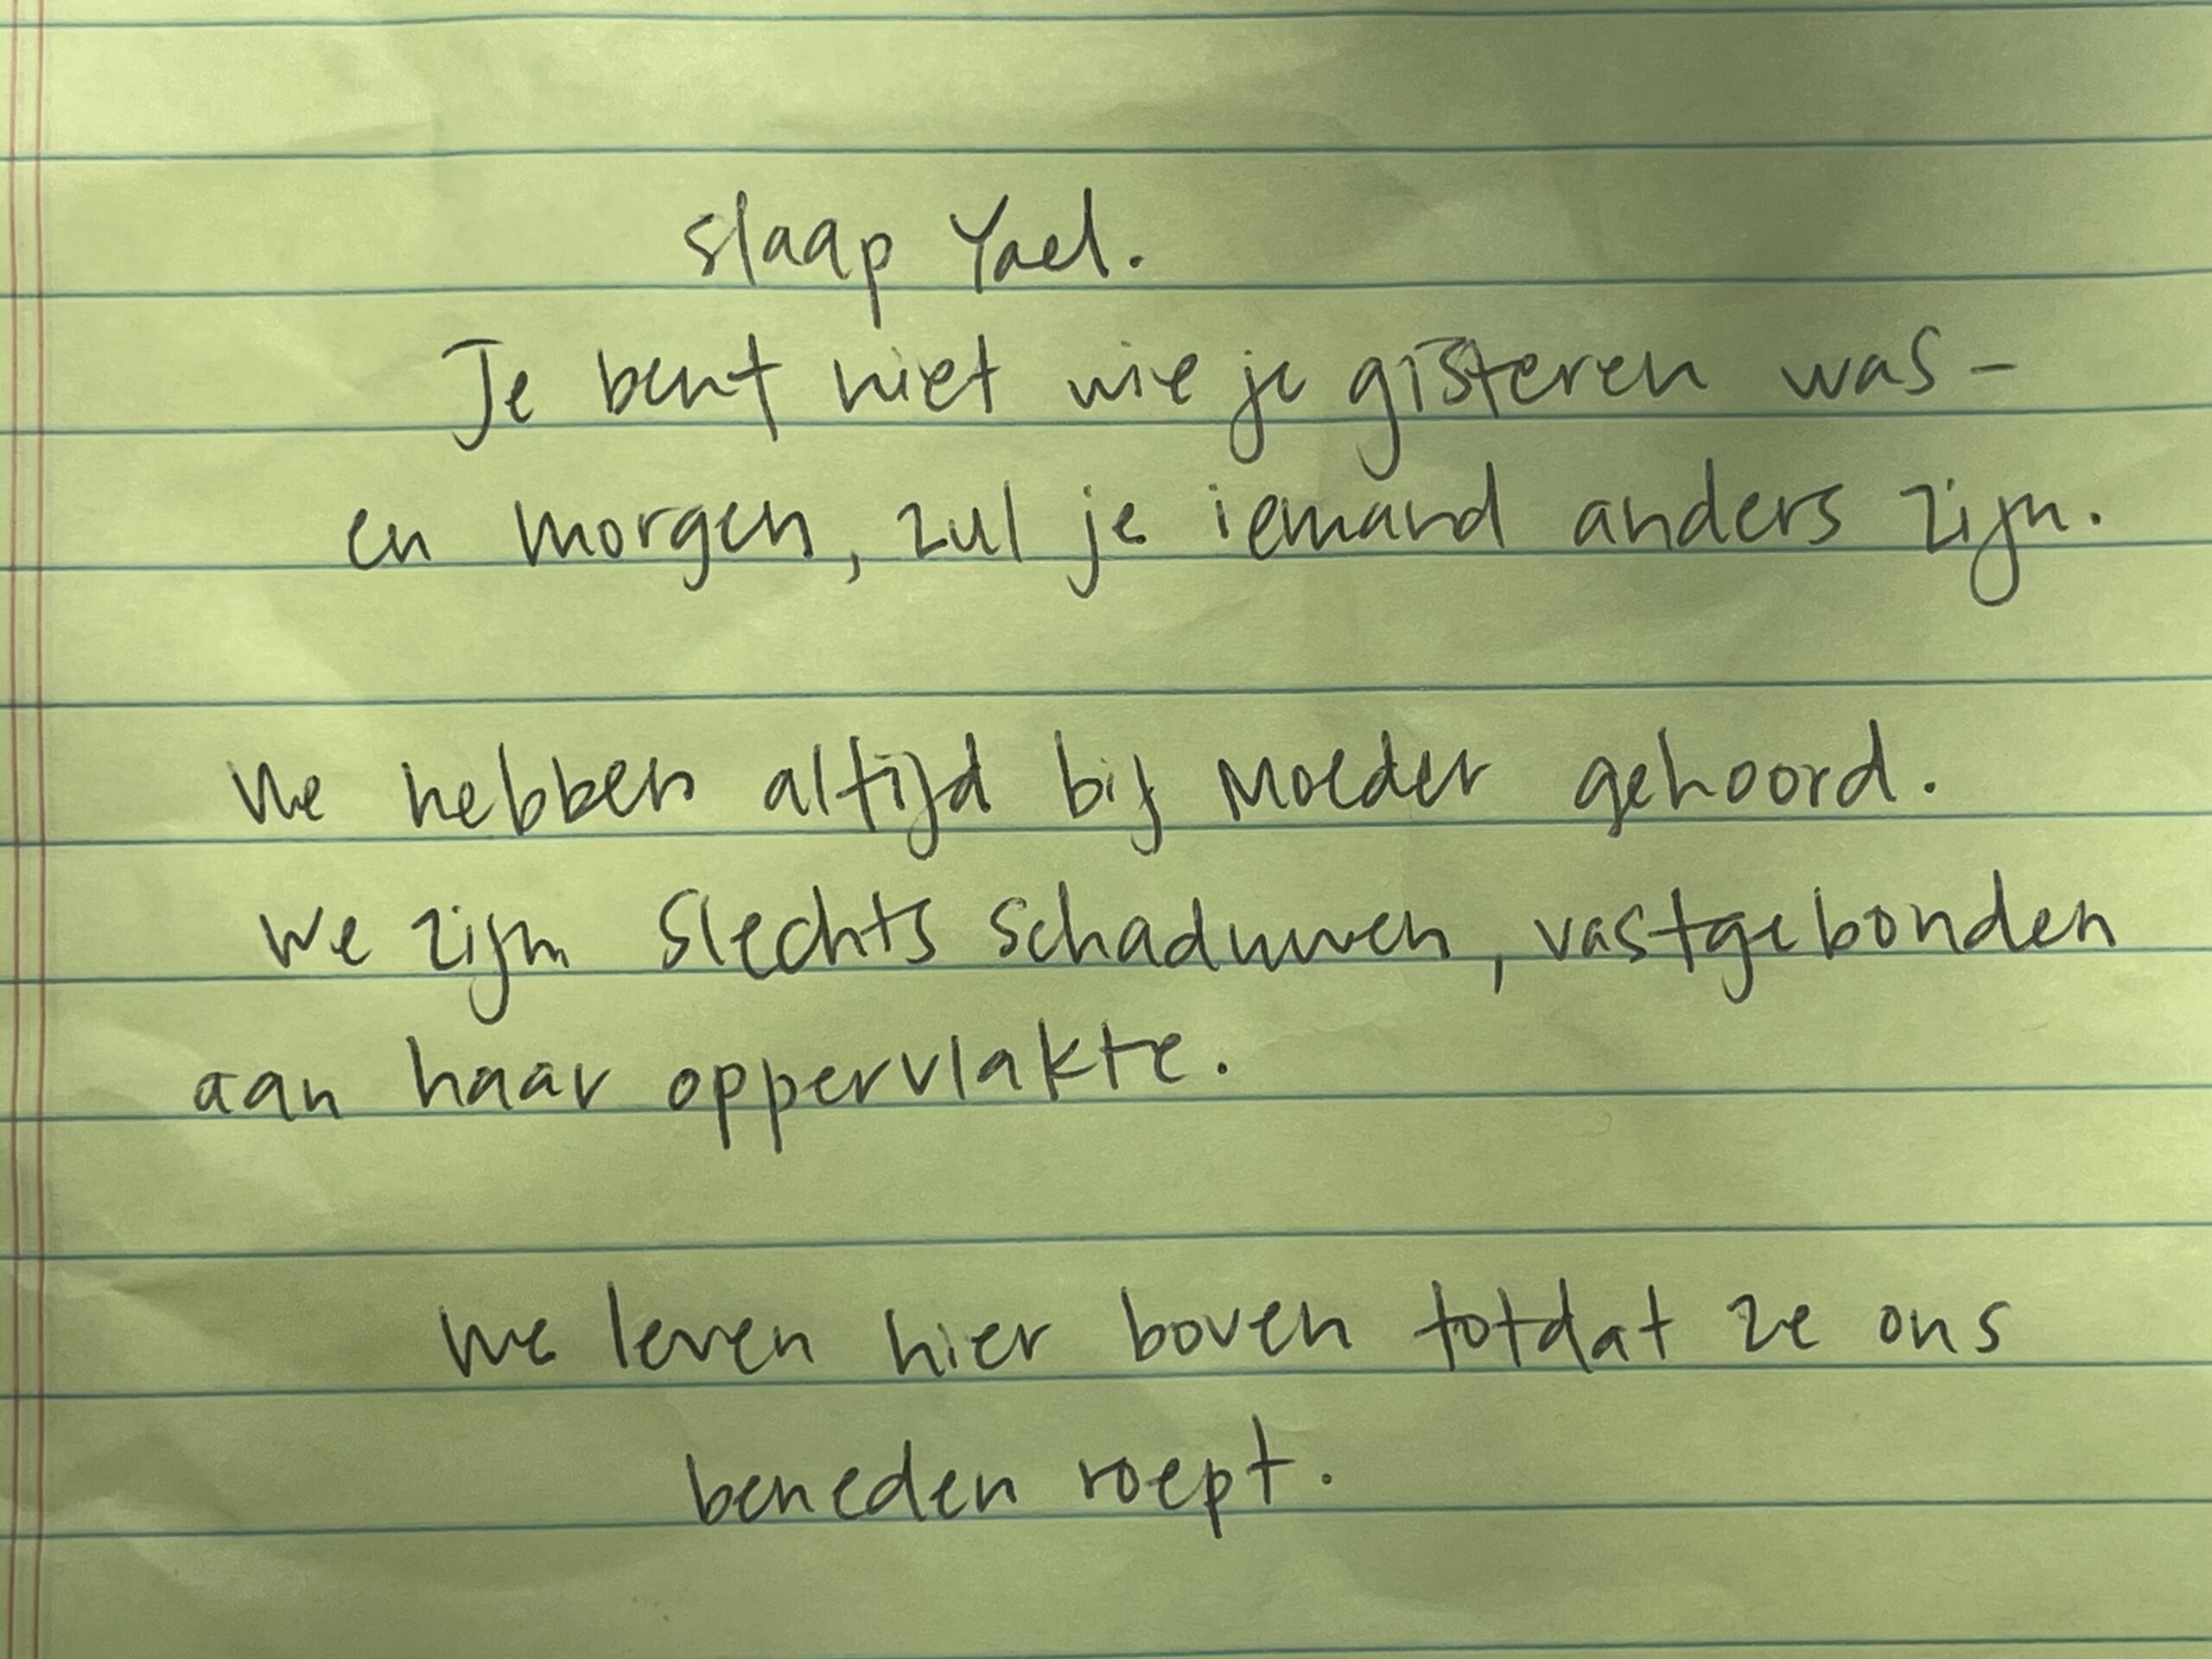 slaap Yael.
Je bent niet wie je gisteren was -
en morgen, zul je iemand anders zijn.
We hebben altijd bij Moeder gehoord.
We zijn slechts schaduwen, vastgebonden
aan haar oppervlakte.
We leven hier boven totdat ze ons
beneden roept.